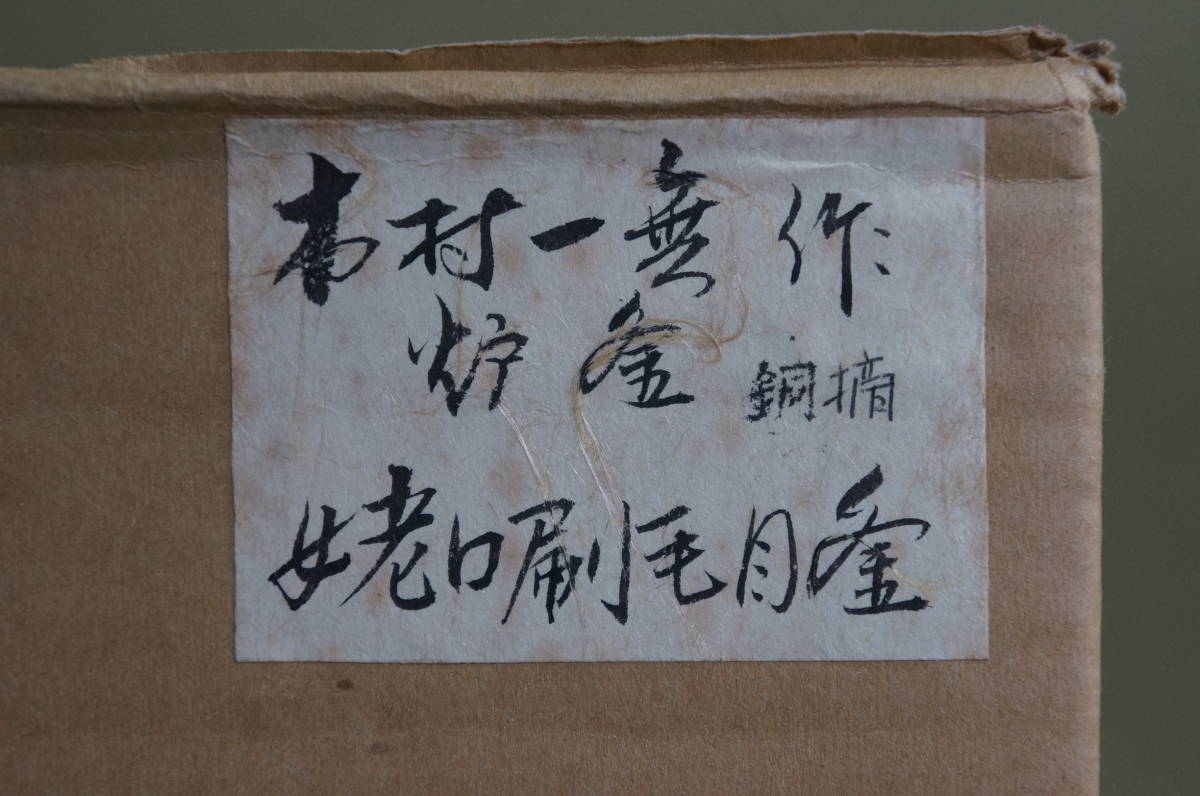 村一無作
炉釜 銅摘
姥口刷毛目釜